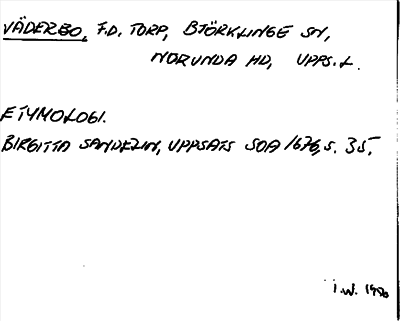 VÄDERBO, F.D. TORP, BJÖRKLINGE SN,
NORUNDA HD, UPPS. L.
ETYMOLOGI.
BIRGITTA SANDELIN, UPPSATS SOA 1676, S. 35.
I.W. 1980